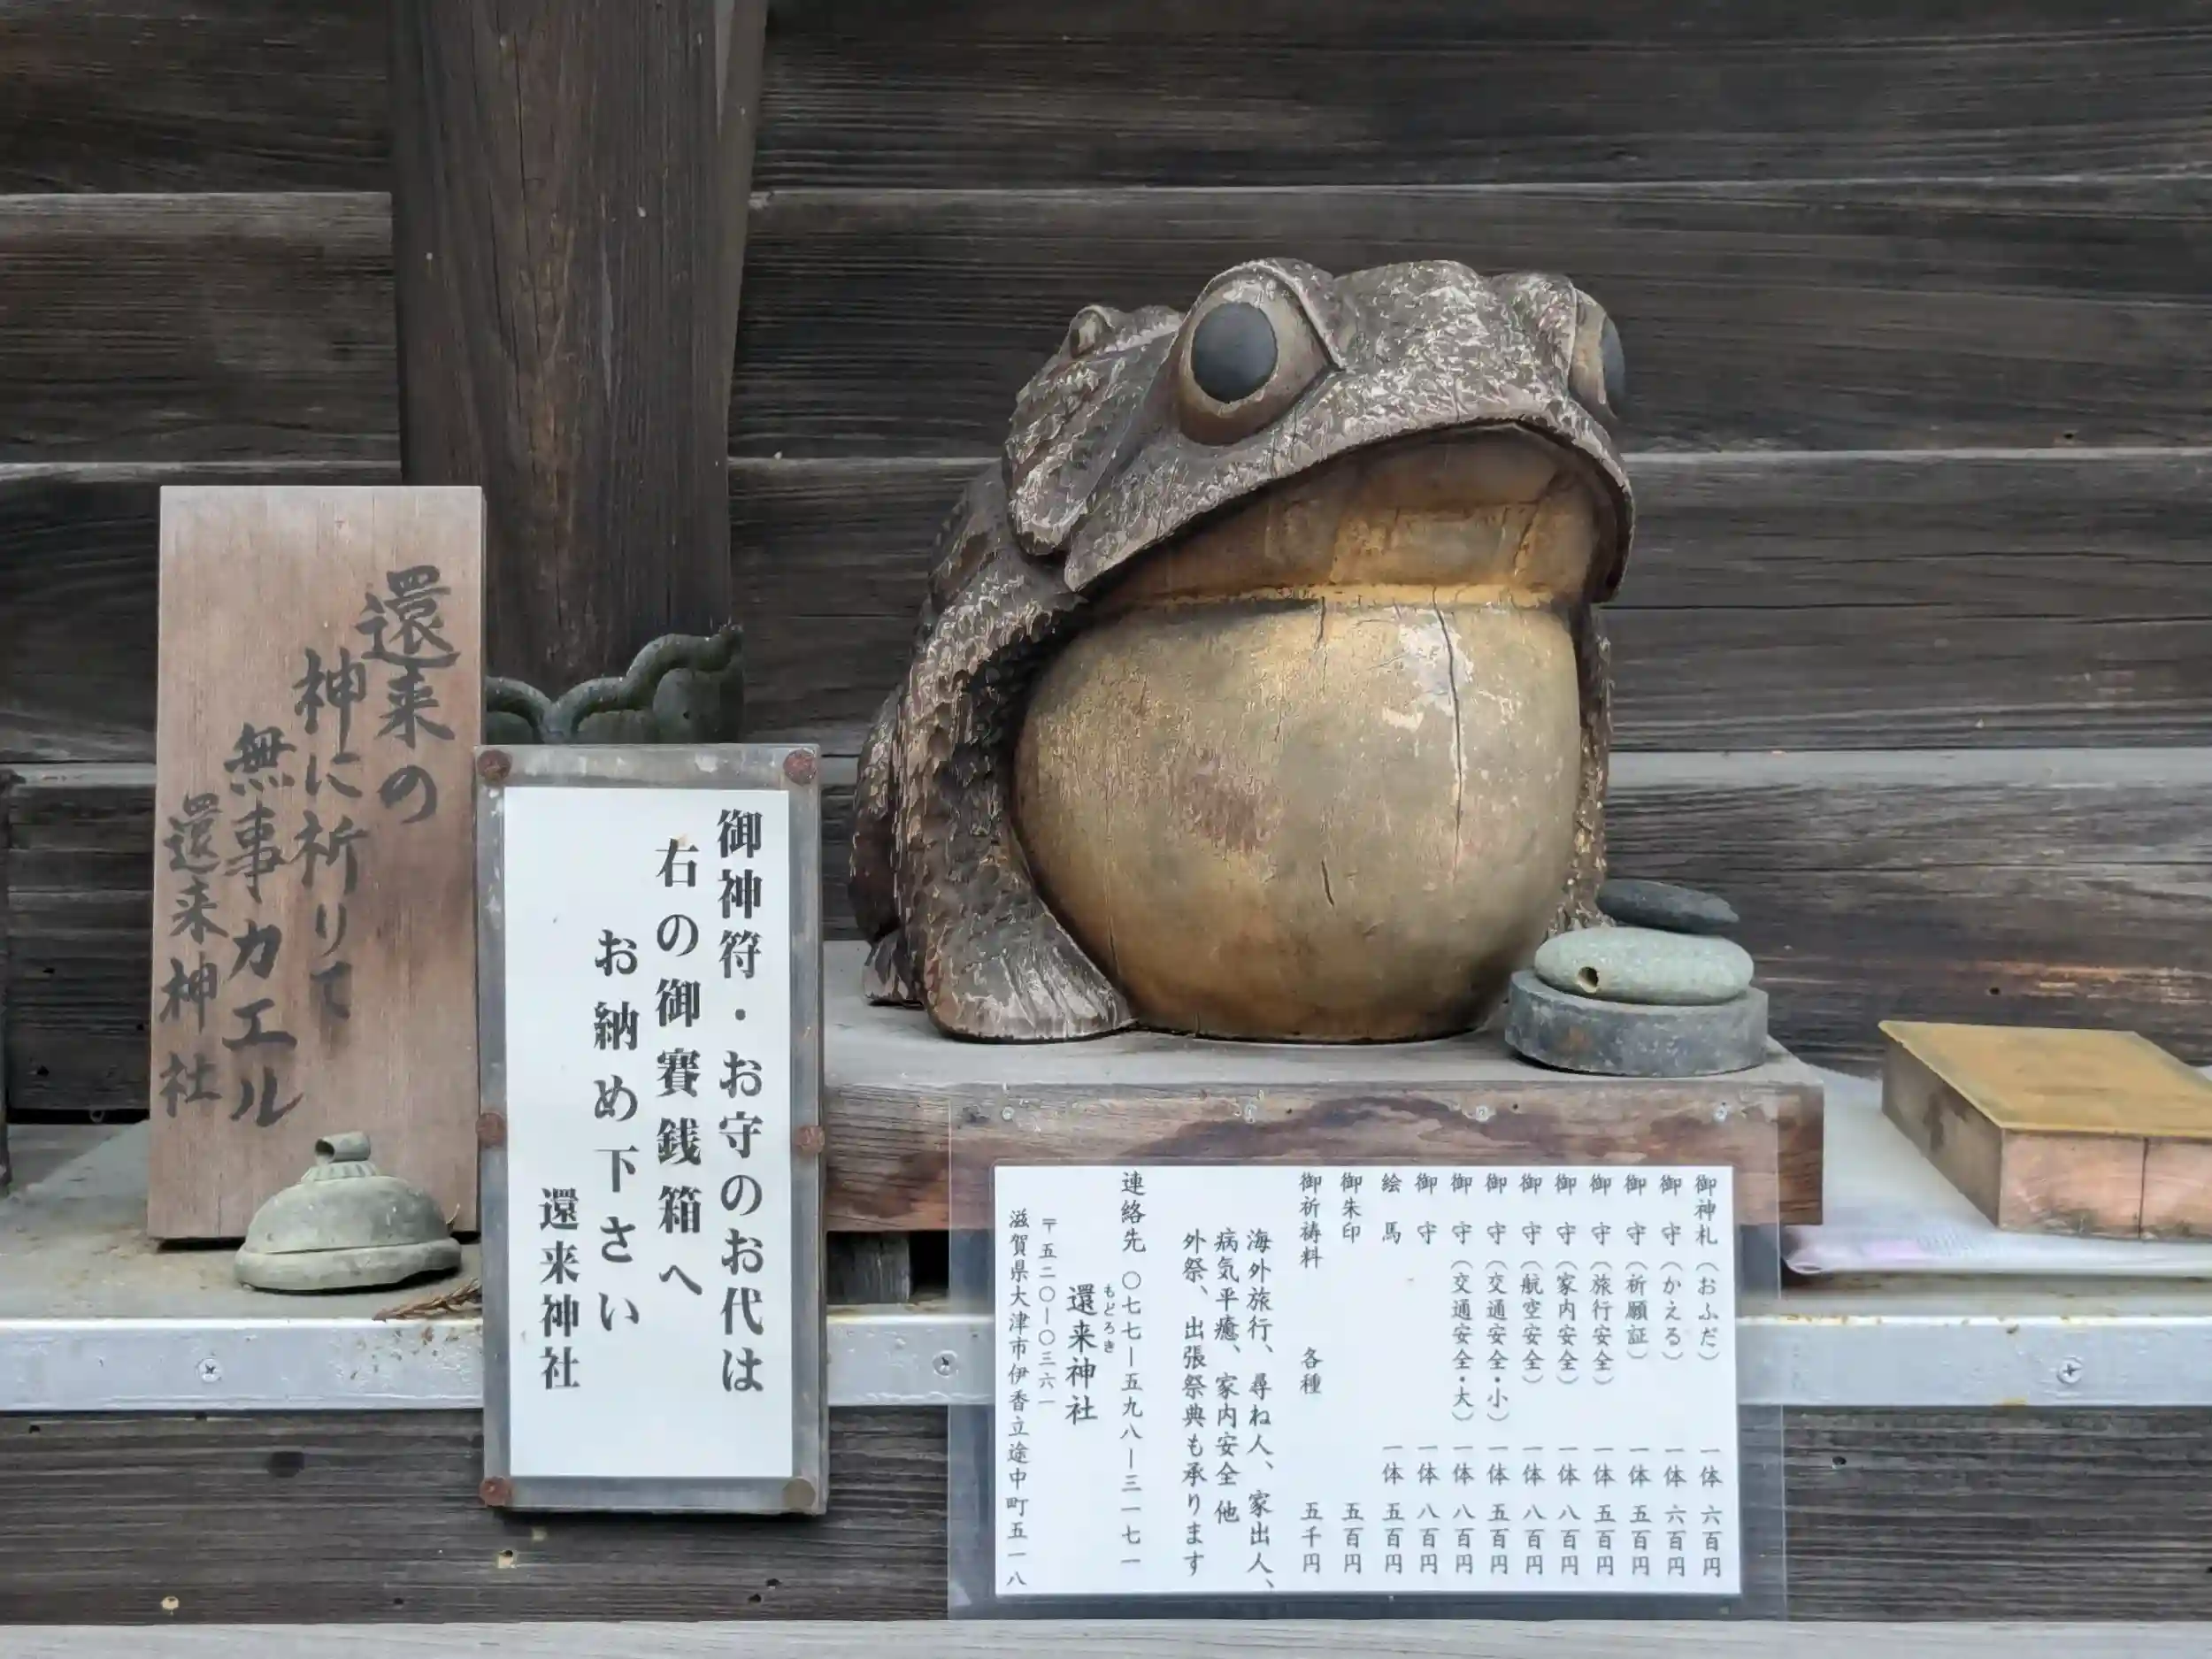 還来の
神に祈りて
無事カエル
還来神社
御神符・お守のお代は
右の御賽銭箱へ
お納め下さい
還来神社
御神札（おふだ） 一体 六百円
御守（かえる） 一体 六百円
御守（祈願証） 一体 五百円
御守（旅行安全） 一体 五百円
御守（家内安全） 一体 八百円
御守（航空安全） 一体 八百円
御守（交通安全・小） 一体 五百円
御守（交通安全・大） 一体 八百円
御守 一体 八百円
絵馬 一体 五百円
御朱印 五百円
御祈祷料 各種 五千円
海外旅行、尋ね人、家出人、
病気平癒、家内安全 他
外祭、出張祭典も承ります
連絡先 〇七七―五九八―三一七一
もどろき
還来神社
〒五二〇―〇三六一
滋賀県大津市伊香立途中町五一八